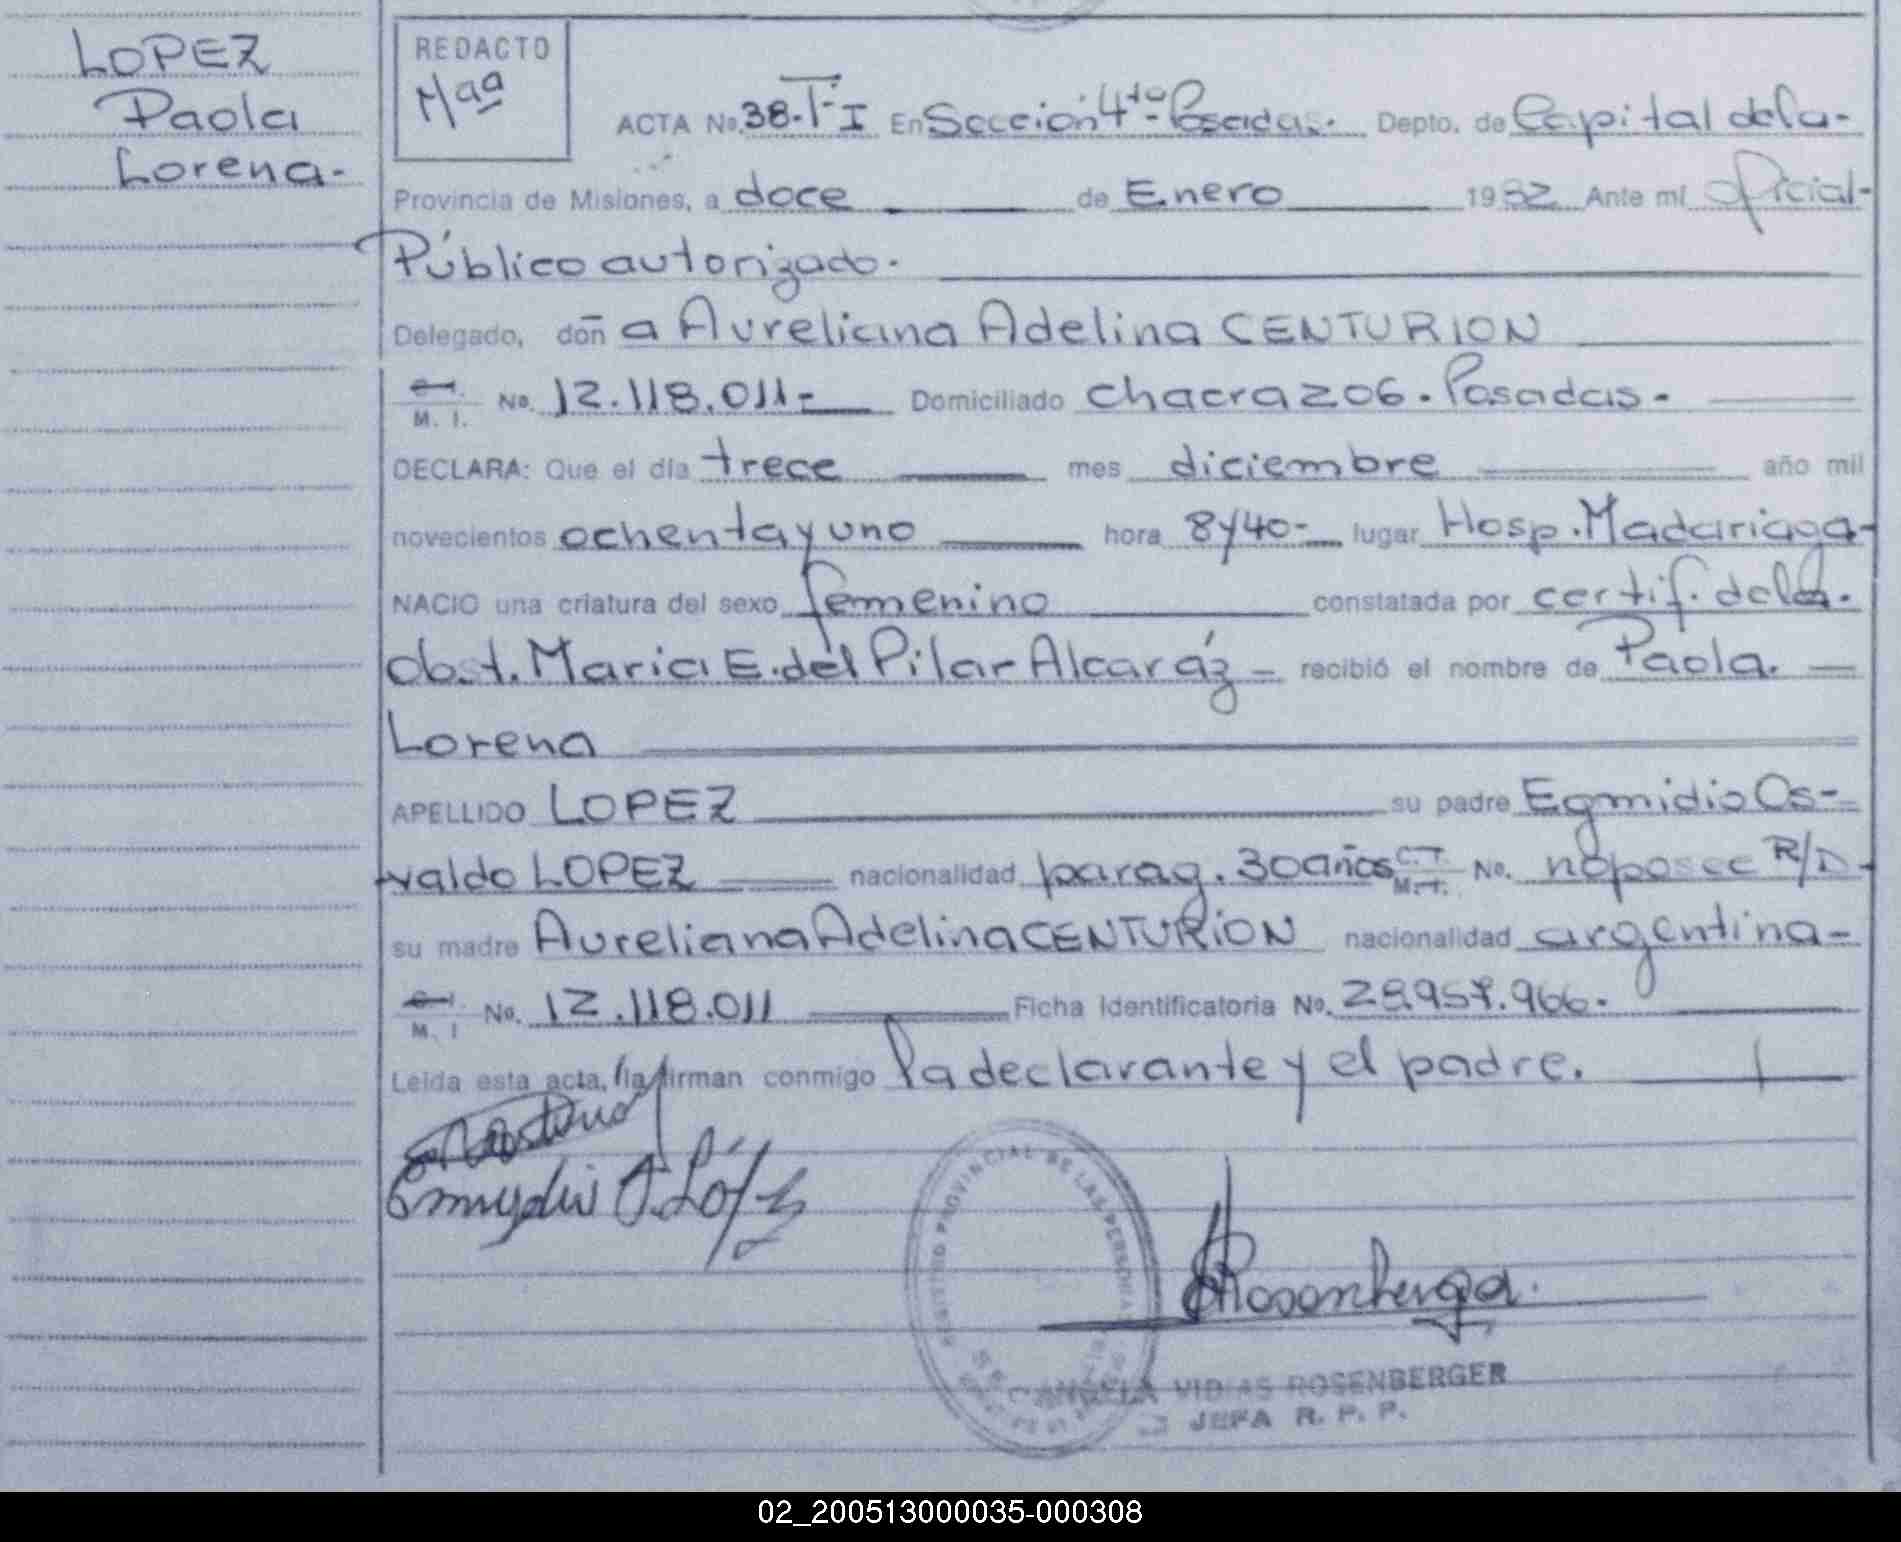 LOPEZ
Paola
Lorena.-
REDACTO
ACTA No. 38.T-I En Sección 4ta- Posadas. Depto. de Capital de la-
Provincia de Misiones, a doce de Enero 1982 Ante mí Oficial-
Público autorizado.
Delegado, doñ a Aureliana Adelina CENTURION
C.I.
M. I. No. 12.118.011.- Domiciliado chacra 206. Posadas.-
DECLARA: Que el día trece mes diciembre año mil
novecientos ochenta y uno hora 8y40- lugar Hosp. Madariaga-
NACIO una criatura del sexo femenino constatada por certif. de la.
obst. Maria E. del Pilar Alcaráz - recibió el nombre de Paola.
Lorena
APELLIDO LOPEZ su padre Egmidio Os-
valdo LOPEZ nacionalidad parag. 30 años C.I. M.I. No. no posee R/D-
su madre Aureliana Adelina CENTURION nacionalidad argentina-
C.I.
M. I No. 12.118.011 Ficha Identificatoria No. 28.957.966.
Leida esta acta, la firman conmigo la declarante y el padre.
Emydio O. López
REGISTRO PROVINCIAL DE LAS PERSONAS
Rosenberger
ANGELA VIDLAS ROSENBERGER
JEFA R. P. P.
02_200513000035-000308